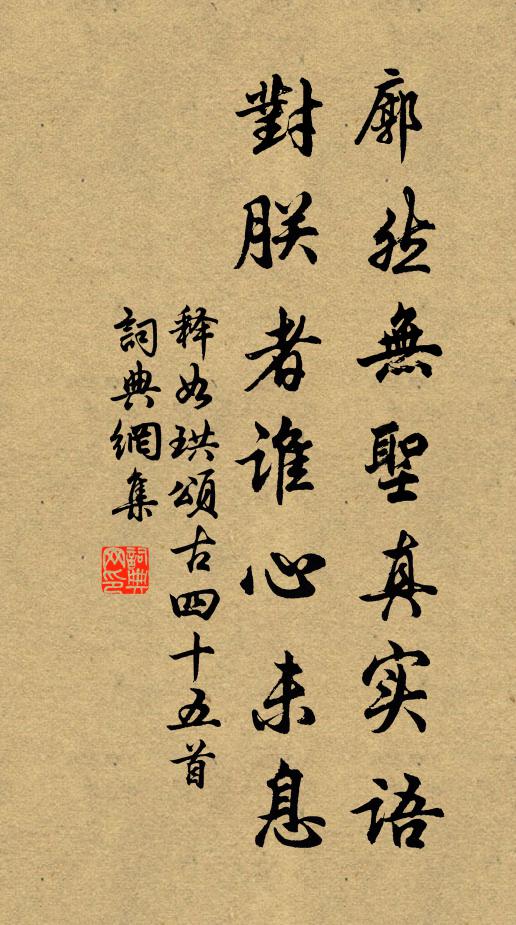 廓然無聖真实语
對朕者谁心未息
释如珙頌古四十五首
詞典網集
詞典
网印